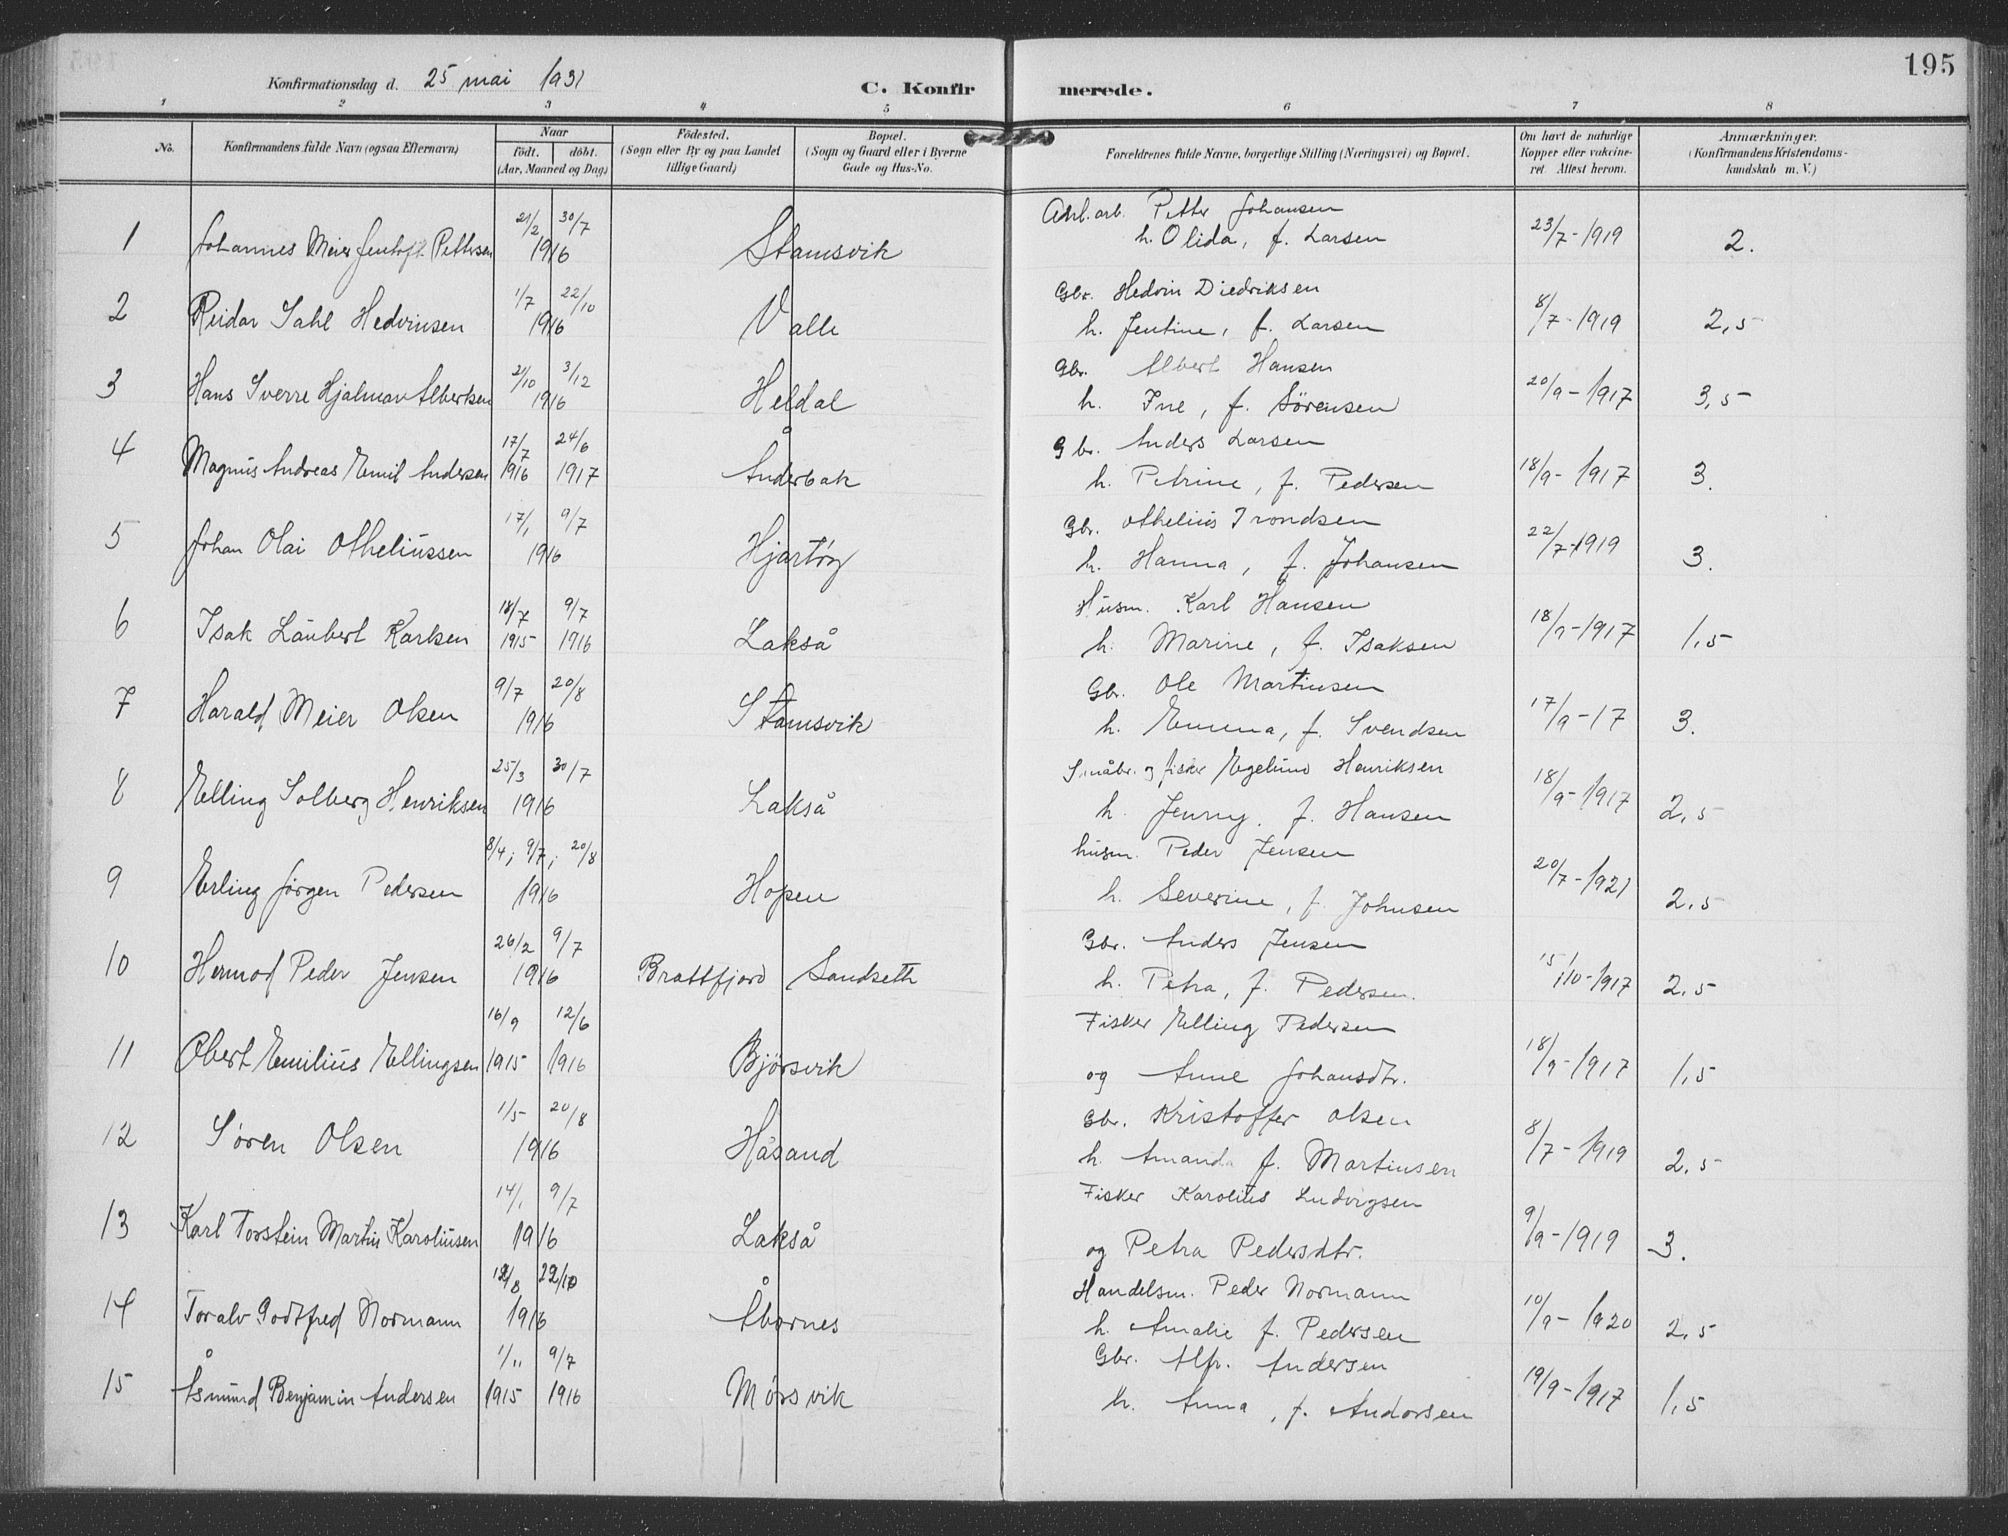 195
Konfirmationsdag d. 25 mai 1931
C. Konfirmerede.
1 2 3 4 5 6 7 8
No.
Konfirmandens fulde Navn (ogsaa Efternavn)
Naar
födt. döbt.
(Aar, Maaned og Dag)
Födested.
(Sogn eller By og paa Landet
tillige Gaard)
Bopæl.
(Sogn og Gaard eller i Byerne
Gade og Hus-No.
Forældrenes fulde Navne, borgerlige Stilling (Næringsvei) og Bopæl.
Om havt de naturlige
Kopper eller vakcine-
ret Attest herom.
Anmærkninger.
(Konfirmandens Kristendoms-
kundskab m. V.)
21/2 30/7 Arb. Petter Johansen
1 Johannes Meier Jentoft Pettersen 1916 Stamsvik h. Olida, f. Larsen 23/7-1919 2.
1/7 22/10 Gbr. Hedvin Diedriksen
2 Reidar Dahl Hedvinsen 1916 Valle h. Jentine, f. Larsen 8/7-1919 2,5
2/10 3/12 Gbr. Albert Hansen
3 Hans Sverre Hjalmar Albertsen 1916 Heldal h. Ine, f. Sörensen 20/9-1917 3,5
17/7 24/6 Gbr. Anders Larsen
4 Magnus Andreas Emil Andersen 1916 1917 Ånderbak h. Petrine, f. Pedersen 18/9-1917 3.
17/1 9/7 Gbr. Othelius Trondsen
5 Johan Olai Otheliussen 1916 Hjartöy h. Hanna, f. Johansen 22/7-1919 3.
18/7 9/7 Husm. Karl Hansen
6 Isak Laubert Karlsen 1915 1916 Lakså h. Marine, f. Isaksen 18/9-1917 1,5
9/7 20/8 Gbr. Ole Martinsen
7 Harald Meier Olsen 1916 Stamsvik h. Emma, f. Svendsen 17/9-17 3.
25/3 30/7 Småbr. og fisker Egelund Henriksen
8 Elling Solberg Henriksen 1916 Lakså h. Jenny f. Hansen 18/9-1917 2,5
8/4; 9/7; 20/8 husm. Peder Jensen
9 Erling Jörgen Pedersen 1916 Hopen h. Severine, f. Johnsen 20/7-1921 2,5
26/2 9/7 Gbr. Anders Jensen
10 Hermod Peder Jensen 1916 Brattfjord Sandseth h. Petra, f. Pedersen. 15/10-1917 2,5
16/9 12/6 Fisker Elling Pedersen
11 Obert Emilius Ellingsen 1915 1916 Björsvik og Anne Johansdtr. 18/9-1917 1,5
1/5 20/8 Gbr. Kristoffer Olsen
12 Sören Olsen 1916 Håsand h. Amanda f. Martinsen 8/7-1919 2,5
14/1 9/7 Fisker Karolius Ludvigsen
13 Karl Torstein Martin Karoliusen 1916 Lakså og Petra Pedersdtr. 9/9-1919 3.
22/10 Handelsm. Peder Normann
14 Toralv Godtfred Normann 1916 Åbornes h. Amalie f. Pedersen 10/9-1920 2,5
1/11 9/7 Gbr. Alfr. Andersen
15 Åsmund Benjamin Andersen 1915 1916 Mörsvik h. Anna, f. Andorsen 19/9-1917 1,5